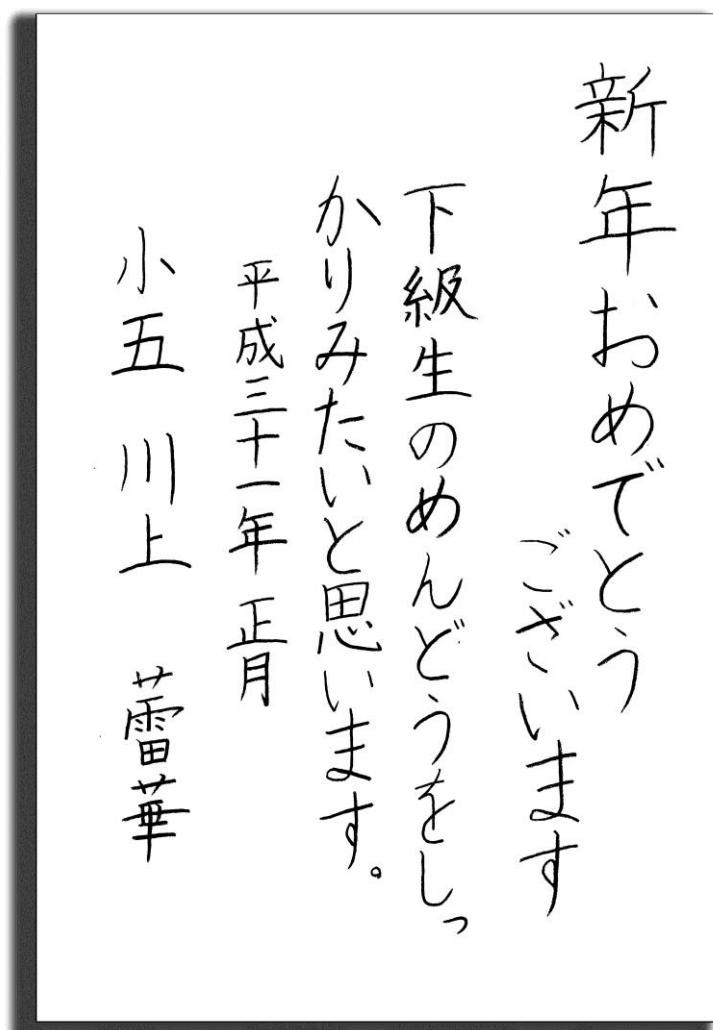 新年おめでとう
ございます
下級生のめんどうをしっ
かりみたいと思います。
平成三十一年 正月
小五 川上 蕾華